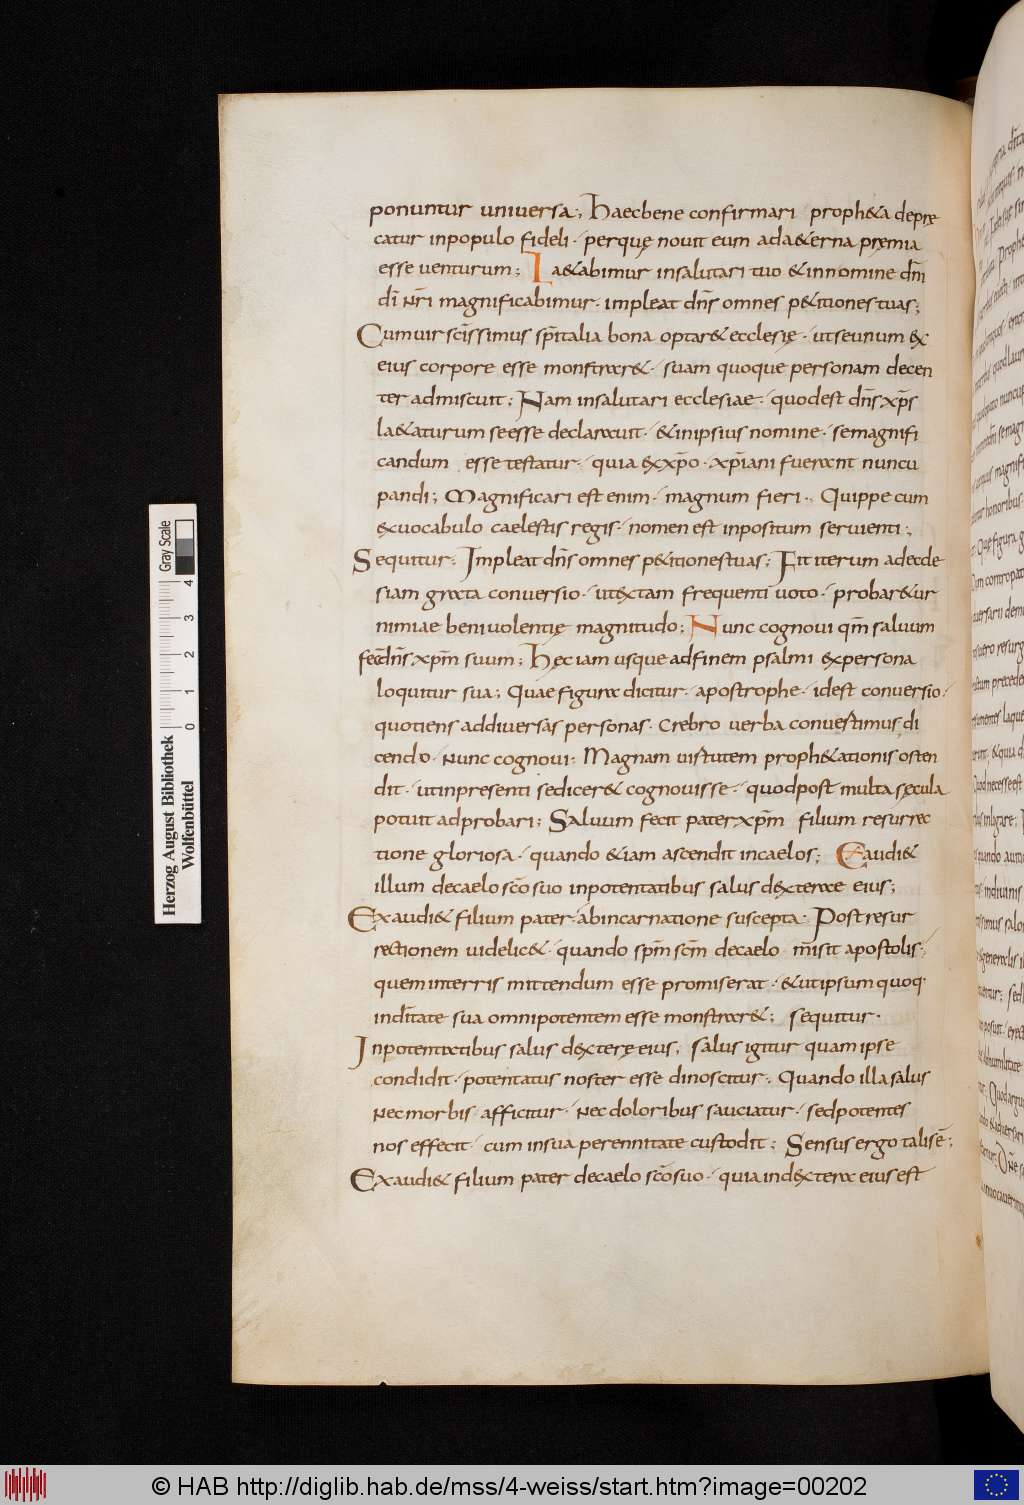 ponuntur universa; Haec bene confirmari proph&a deprę
catur in populo fideli · per quę novit eum ad a&erna pręmia
esse venturum; La&abimur in salutari tuo & in nomine dñi
dī nr̄i magnificabimur · impleat dn̄s omnes p&itiones tuas;
Cum vir sc̄issimus sp̄italia bona optar& ecclesię · ut se unum ex
eius corpore esse monstrar& · suam quoque personam decen
ter admiscuit; Nam in salutari ecclesiae · quod est dn̄s xp̄s
la&aturum se esse declaravit · & in ipsius nomine · se magnifi
candum esse testatur · quia ex xp̄o · xp̄iani fuerant nuncu
pandi; Magnificari est enim · magnum fieri · Quippe cum
ex vocabulo caelestis regis · nomen est inpositum servienti;
Sequitur; Impleat dn̄s omnes p&itiones tuas; Fit iterum ad eccle
siam grata conversio · ut ex tam frequenti voto · probar&ur
nimiae benivolentię magnitudo; Nunc cognovi qm̄ salvum
fec dn̄s xp̄m suum; Hęc iam usque ad finem psalmi ex persona
loquitur sua; Quae figura dicitur · apostrophe · id est conversio ·
quotiens ad diversas personas · crebro verba convestimus · di
cendo · nunc cognovi; Magnam virtutem proph&ationis osten
dit · ut in presenti se dicer& cognovisse · quod post multa sęcula
potuit adprobari; Salvum fecit pater xp̄m filium resurrec
tione gloriosa · quando &iam ascendit in caelos; Exaudi&
illum de caelo sc̄o suo in potentatibus salus dexterae eius;
Exaudi& filium pater · ab incarnatione suscepta · Post resur
rectionem videlic& · quando sp̄m sc̄m de caelo misit apostolis ·
quem in terris mittendum esse promiserat · & ut ipsum quoq·
in dīitate sua omnipotentem esse monstrar&; sequitur ·
In potentatibus salus dexterę eius; salus igitur quam ipse
condidit · potentatus noster esse dinoscitur; Quando illa salus
nec morbis · afficitur · nec doloribus sauciatur · sed potentes
nos effecit · cum in sua perennitate custodit; Sensus ergo talis ē;
Exaudi& filium pater de caelo sc̄o suo · quia in dextera eius est
Herzog August Bibliothek
Wolfenbüttel
0 1 2 3 4
Gray Scale
© HAB http://diglib.hab.de/mss/4-weiss/start.htm?image=00202